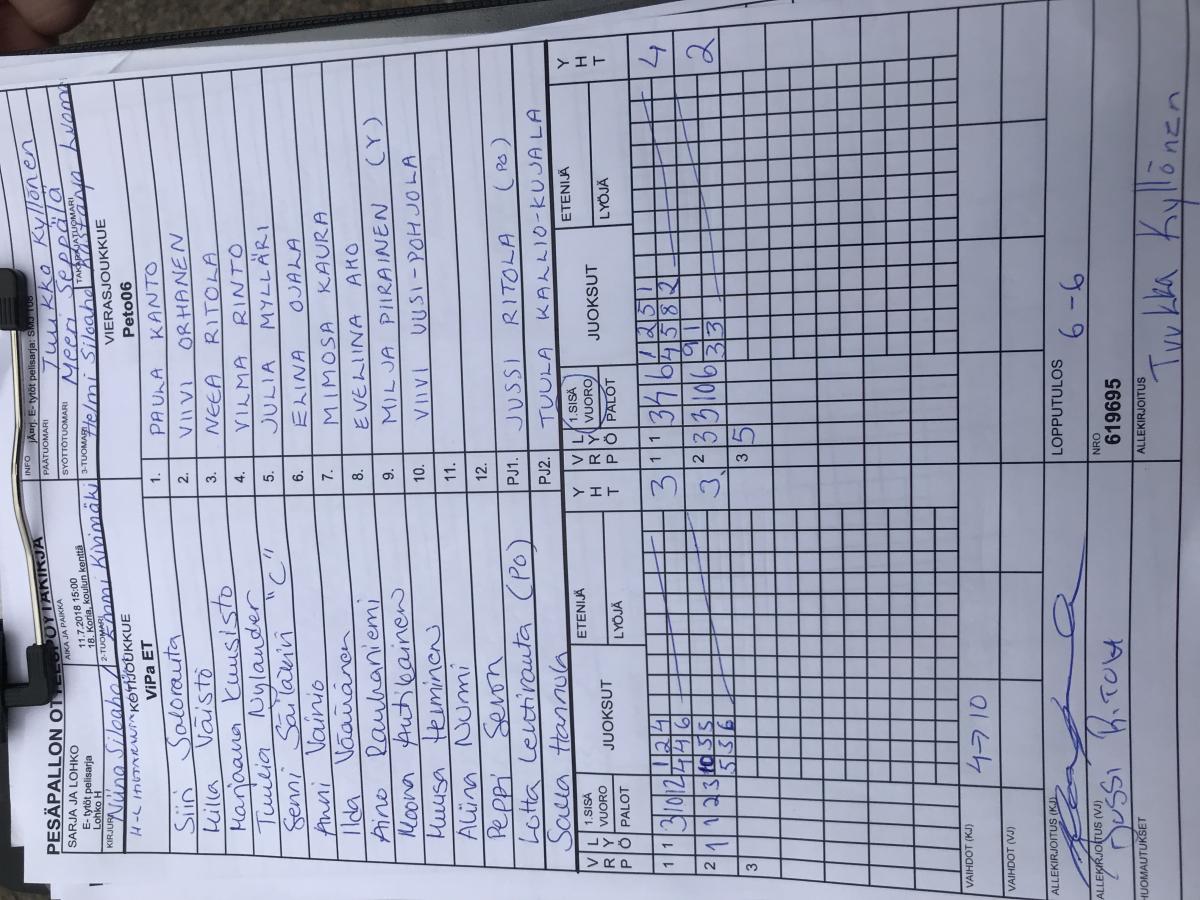 PESÄPALLON OTTELUPÖYTÄKIRJA
SARJA JA LOHKO
E- tytöt pelisarja
Lohko H
AIKA JA PAIKKA
11.7.2018 15:00
18. Koria, koulun kenttä
INFO
E- tytöt pelisarja: SMJ 108
PÄÄTUOMARI Tuukka Kyllönen
SYÖTTÖTUOMARI Meeri Seppälä
KIRJURI
2-TUOMARI Kivimäki
3-TUOMARI Helmi Siloaho
TAKARAJATUOMARI
KOTIJOUKKUE
ViPa ET
VIERASJOUKKUE
Peto06
Siiri Salorauta
1. PAULA KANTO
Killa Väistö
2. VIIVI ORHANEN
Marjaana Kuusisto
3. NEEA RITOLA
Tuulia Nylander
4. VILMA RINTO
Senni Säiläkivi "C"
5. JULIA MYLLÄRI
Anni Vainio
6. ELINA OJALA
Ilda Väänänen
7. MIMOSA KAURA
Aino Rauhaniemi
8. EVELIINA AHO
Moona Antilainen
9. MILJA PIIRAINEN (Y)
Miisa Heiminen
10. VIIVI UUSI-POHJOLA
Aliina Nurmi
11.
Peppi Seron
12.
Lotta Leutirauta (PO)
PJ1. JUSSI RITOLA (PO)
Salla Hannula
PJ2. TUULA KALLIO-KUJALA
V R P
L Y Ö
1.SISÄ VUORO
PALOT
JUOKSUT
ETENIJÄ
LYÖJÄ
Y H T
V R P
L Y Ö
1.SISÄ VUORO
PALOT
JUOKSUT
ETENIJÄ
LYÖJÄ
Y H T
1 1 3 10 12 1 2 4
4 4 6
3
1 1 3 4 6 1 2 5 1
4 5 8 2
4
2 1 1 2 3 10 5 5
5 5 6
3
2 3 3 10 6 9 1
3 3
2
3
3 5
VAIHDOT (KJ) 4→10
VAIHDOT (VJ)
ALLEKIRJOITUS (KJ)
LOPPUTULOS
6-6
ALLEKIRJOITUS (VJ)
Jussi Ritola
NRO
619695
HUOMAUTUKSET
ALLEKIRJOITUS
Tuukka Kyllönen